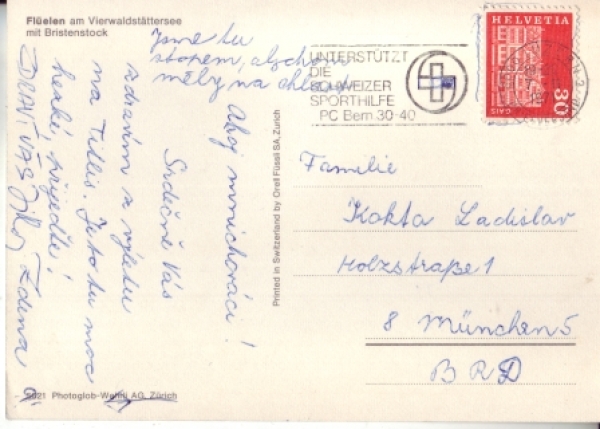 Flüelen am Vierwaldstättersee
mit Bristenstock
Ahoj mnichováci!
Srdečně Vás
zdravím z výletu
na Titlis. Je to tu moc
hezké, přijeďte!
ZDRAVÍ VÁS Zdena
Jsme tu
stopem, abychom
měly na chleba
Printed in Switzerland by Orell Füssli SA, Zürich
UNTERSTÜTZT
DIE
SCHWEIZER
SPORTHILFE
PC Bern 30-40
HELVETIA
GAIS
30
Familie
Kokta Ladislav
Holzstraße 1
8 München 5
BRD
Photoglob-Wehrli AG, Zürich